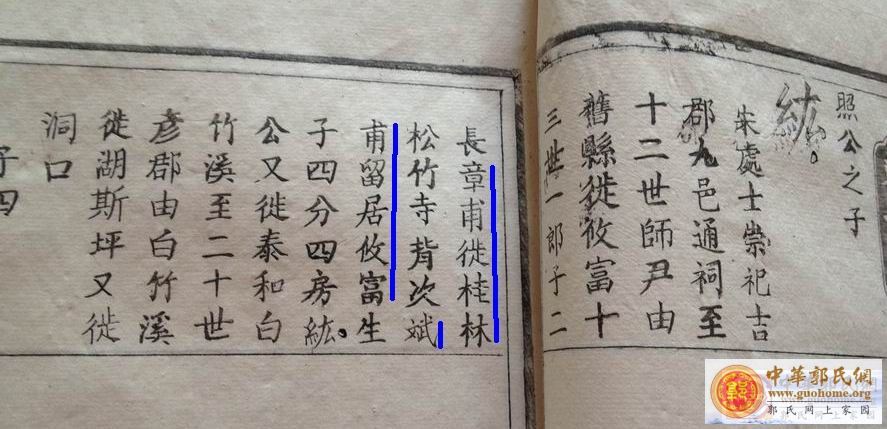 照公之子
紘
宋處士崇祀吉
郡九邑通祠至
十二世師尹由
舊縣徙攸富十
三世一郎子二
長章甫徙桂林
松竹寺背次斌
甫留居攸富生
子四分四房紘
公又徙泰和白
竹溪至二十世
彥郡由白竹溪
徙湖斯坪又徙
洞口
子四
中華郭氏網
www.guohome.org
郭氏网上家园